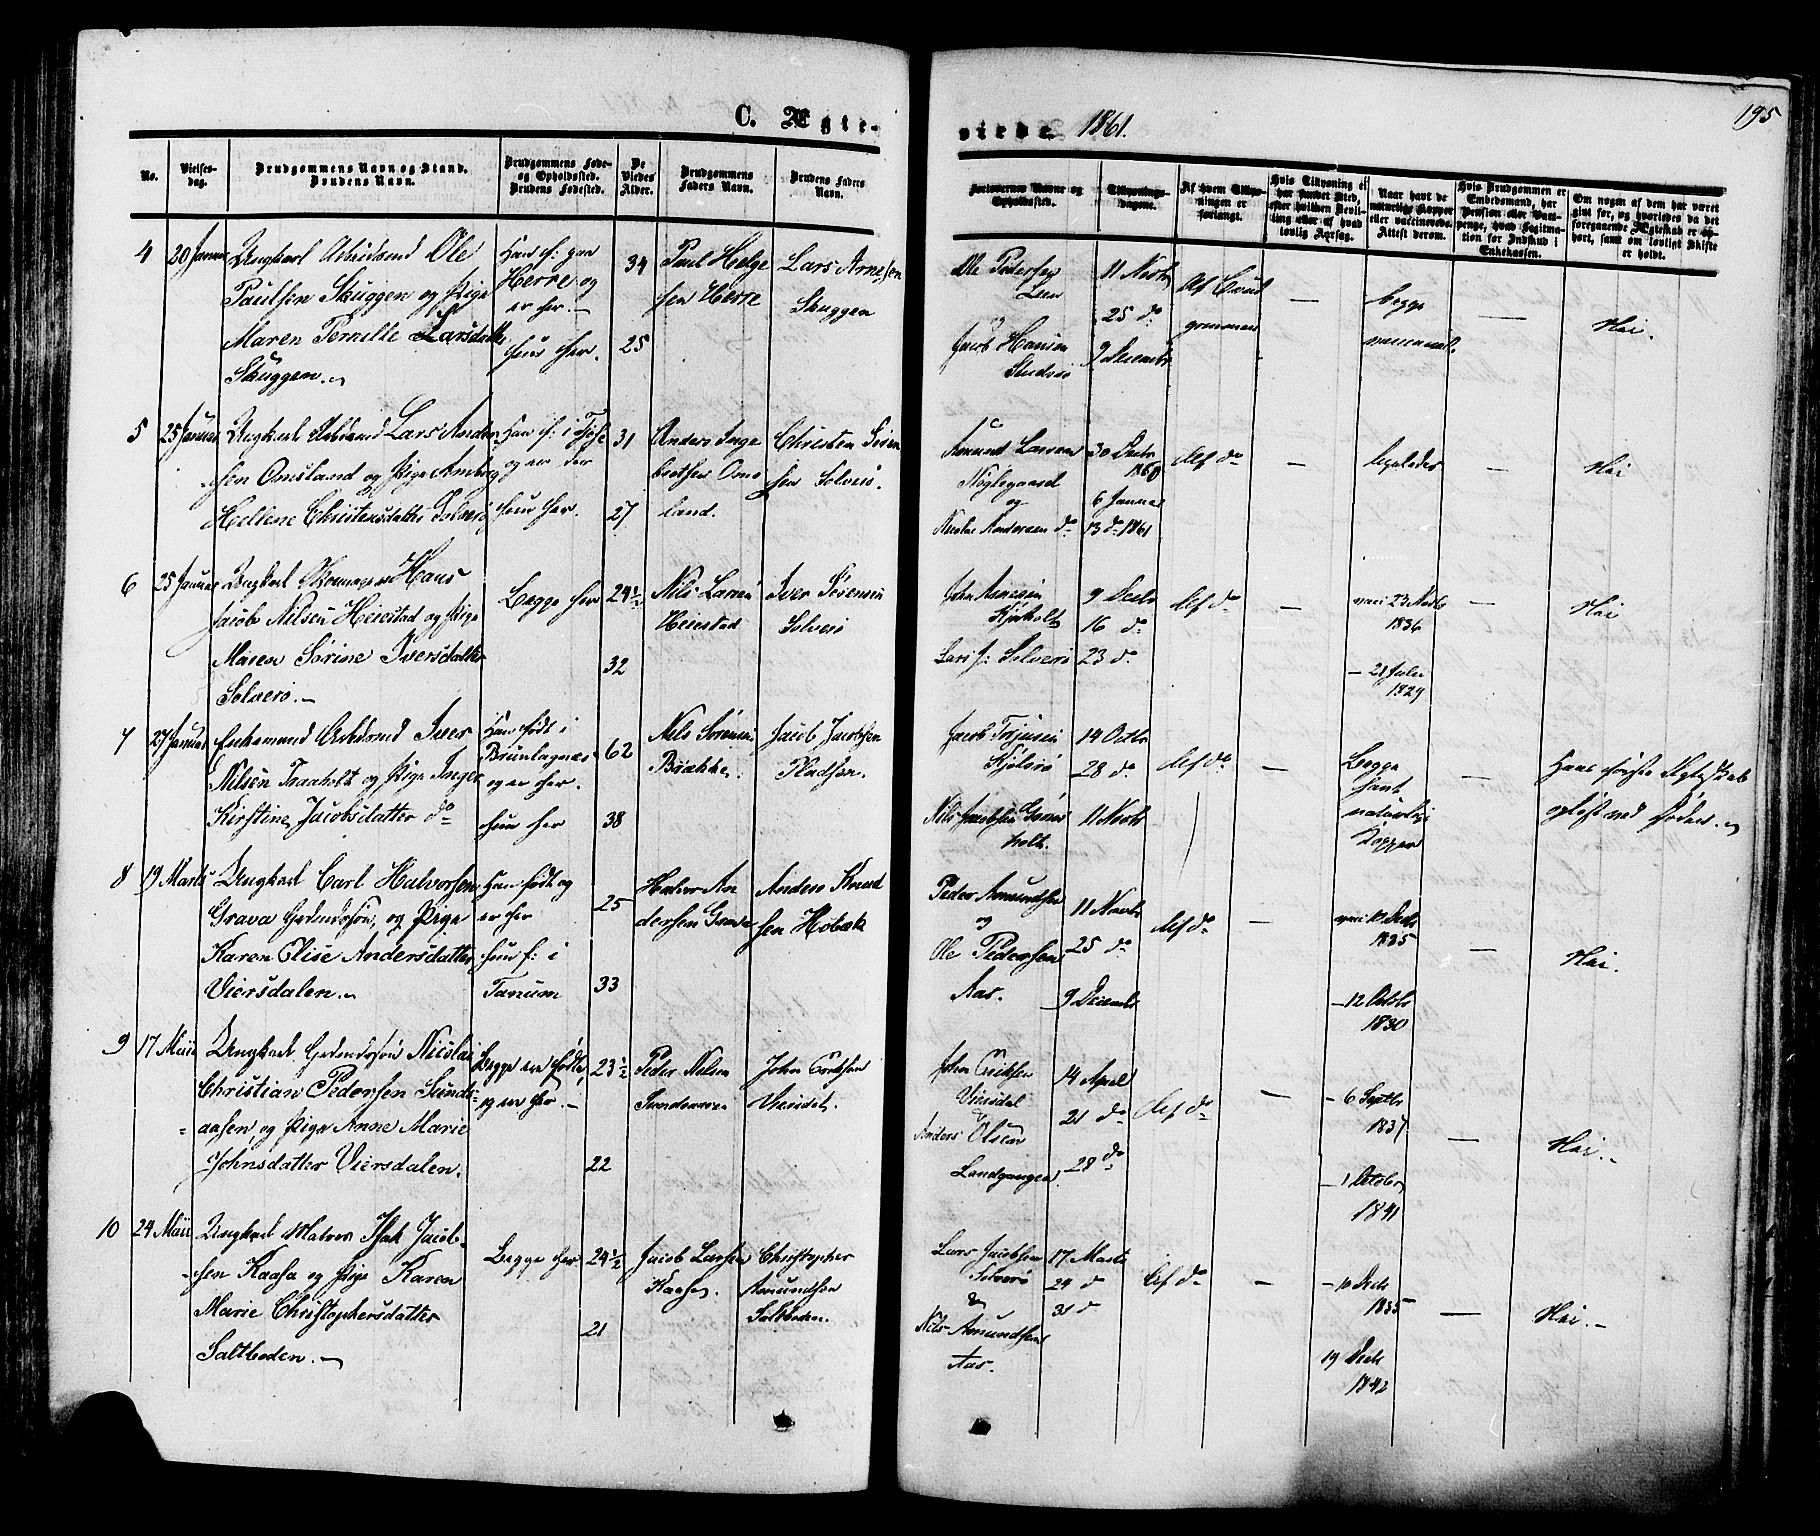 195
C. Ægte-
vielse. 1861.
No.
Vielses-
dag.
Brudgommens Navn og Stand.
Brudens Navn.
Brudgommens Føde-
og Opholdssted.
Brudens Fødested.
De
Viedes
Alder.
Brudgommens
Faders Navn.
Brudens Faders
Navn.
Forlovernes Navne og
Opholdssted.
Tillysnings-
dagene.
Af hvem Tillys-
ningen er
forlangt.
Hvis Tillysning ei
har fundet Sted,
efter hvilken Bevil-
ling eller af hvad
lovlig Aarsag.
Naar havt de
naturlige Kopper
eller vaccinerede.
Attest derom.
Hvis Brudgommen er
Embedsmand, har
Pension eller Vart-
penge, hvad Legitima-
tion for Indskud i
Enkekassen.
Om nogen af dem har været
gift før, og hvorledes da det
foregaaende Ægteskab er op-
hørt, samt om lovligt Skifte
er holdt.
4
20 Januar
Ungkarl Arbeidsmd Ole
Paulsen Skuggen og Pige
Maren Pernille Larsdatter
Skuggen.
Han f: paa
Herre og
er her.
hun her.
34
25
Paul Helge
sen Herre
Lars Arnesen
Skuggen
Ole Pedersen
Leen
og
Jacob Hansen
11 Novbr
25 do
9 Decembr
Af Brud
gommen
—
begge
vaccineret.
—
Nei.
5
25 Januar
Ungkarl Arbmd Lars Ander-
sen Omsland og Pige Amborg
Hellene Christensdatter Solverø
Han f: i
og er der
hun her.
31
27
Anders Inge
bretsen Oms
land.
Christen Søren
sen Solverø.
Amund Larsen
Nøglegaard
og
Nicolai Andersen do
30 Decbr
1860
6 Januar
13 do 1861
Af do
—
ligeledes
—
Nei
6
25 Januar
Ungkarl Skomager Hans
Jacob Nilsen Heiestad og Pige
Maren Sørine Iversdatter
Solverø.
Begge her
24½
32
Nils Larsen
Heiestad
Iver Sørensen
Solverø
John
Kjøholt
Lars f: Solverø
9 Decbr
16 do
23 do
Af do
—
vacc 23 Novbr
1836
— 21 Juli
1829
—
Nei
7
27 Januar
Enkemand Arbdsmd Iver
Nilsen Traaholt og Pige Inger
Kirstine Jacobsdatter do
Han født i
Brunlagnes
og er her.
hun her
62
38
Nils Sørensen
Brække.
Jacob Jacobsen
Pladsen.
Jacob Terjesen
Kjølsrø
Nils Jacobsen Grøns
holt.
14 Octbr
28 do
11 Novbr
Af do
—
Begge
havt
naturlige
Kopper
—
Hans første Ægteskab
opløst ved Døden.
8
19 Marts
Ungkarl Carl Halvorsen
Grava Grdmdssøn, og Pige
Karen Elise Andersdatter
Viersdalen.
Han født og
er her
hun f: i
Tanum
25
33
Halvor An
dersen Grava
Anders Knud
sen Hobæk
Peder Amundsen
og
Ole Pedersen
Aas.
11 Novbr
25 do
9 Decembr
Af do
—
vacc 12 Decbr
1835
— 12 Octbr
1830
—
Nei.
9
17 Maii
Ungkarl Grdmdssøn Nicolai
Christian Pedersen Sunds-
aasen, og Pige Anne Marie
Johnsdatter Viersdalen.
Begge ere fødte
og er her.
23½
22
Peder Nilsen
Sundsaasen
John Eriksen
Viersdal.
John Eriksen
Viersdal
&
Anders Olsen
Landgangen
14 April
21 do
28 do
Af do
—
— 6 Septbr
1837.
— 1 Octobr
1841
—
Nei.
10
24 Maii
Ungkarl Matros Isak Jacob-
sen Kaasa og Pige Karen
Marie Christophersdatter
Saltboden.
Begge her
24½
21
Jacob Larsen
Kaasa.
Christopher
Amundsen
Saltboden.
Lars Jacobsen
Solverø
&
Nils Amundsen
Aas.
17 Marts
24 do
31 do
Af do
—
— 10 Decbr
1835
19 Decbr
1842
—
Nei.